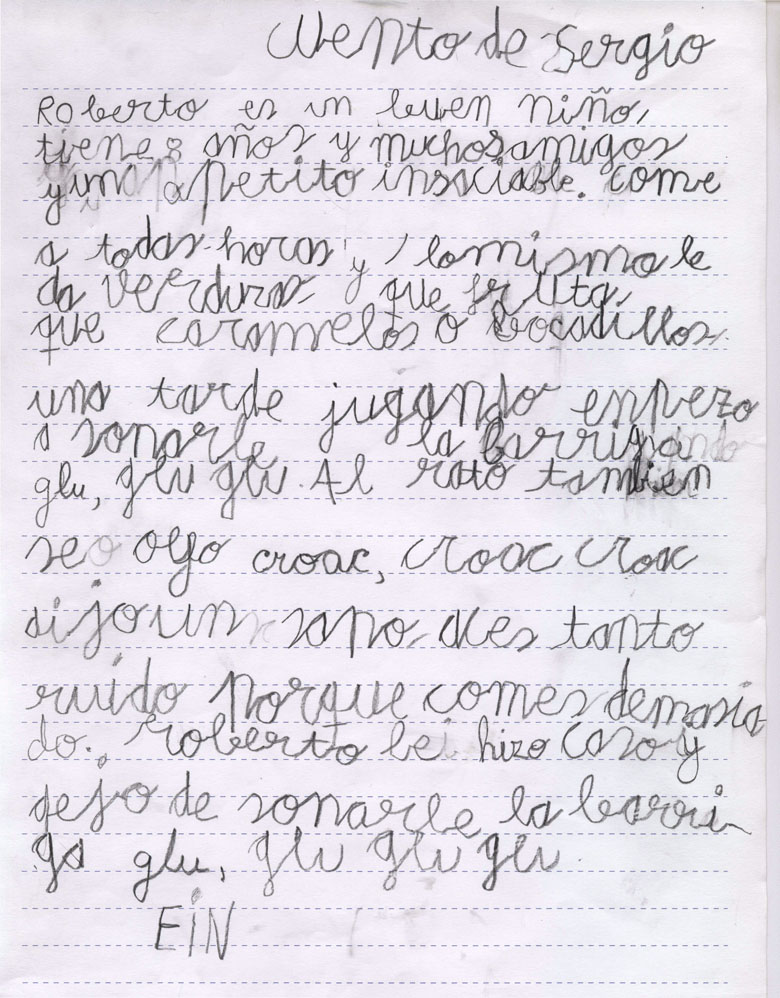 Cuento de Sergio
Roberto es un buen niño,
tiene 8 años y muchos amigos
y un apetito insaciable. come
a todas horas y lo mismo le
da verduras y que fruta,
que caramelos o bocadillos
una tarde jugando enpezo
a sonarle la barriga
glu, glu glu. Al rato tambien
se oyo croac, croac croac
dijo un sapo aces tanto
ruido porque comes demasia
do. Roberto le hizo caso y
dejo de sonarle la barri-
ga glu, glu glu glu
FIN